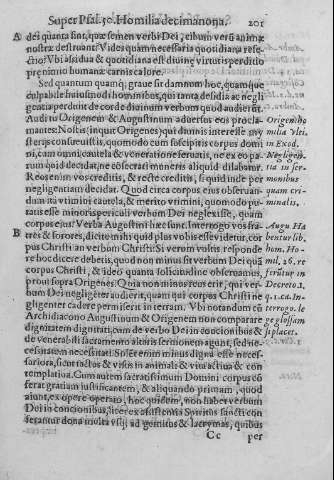 Super Psal. 50. Homilia decimanona. 201
A dei quanta sint, quæ semen verbi Dei, cibum verū animæ
nostræ destruant? Vides quam necessaria quotidiana refe-
ctio? Vbi assidua & quotidiana est diuinę virtutis perditio
prę nimio humanæ carnis calore.
Sed quantum quamq; graue sit damnum hoc, quamque
culpabile huiusmodi hominibus, qui tanta desidia ac negli
gentia perdunt de corde diuinum verbum quod audierūt.
Audi tu Origenem & Augustinum aduersus eos procla-
mantes: Nostis (inquit Origenes) qui diuinis interesse my
sterijs consueuistis, quomodo cum suscipitis corpus domi
ni, cum omni cautela & veneratione seruatis, ne ex eo pa-
rum quid decidat, ne cōsecrati muneris aliquid dilabatur.
Reos enim vos creditis, & recte creditis, si quid inde per
negligentiam decidat. Quod si circa corpus eius obseruan-
dum ita vtimini cautela, & merito vtimini, quomodo pu-
tatis esse minoris periculi verbum Dei neglexisse, quam
corpus eius? Verba Augustini hæc sunt. Interrogo vos fra-
B tres & sorores, dicite mihi quid plus vobis esse videtur, cor
pus Christi an verbum Christi? Si verum vultis responde
re hoc dicere debetis, quod non minus sit verbum Dei quā
corpus Christi, & ideo quanta solicitudine obseruamus,
prout supra Origenes: Quia non minor reus erit, qui ver-
bum Dei negligēter audierit, quam qui corpus Christi ne
gligenter cadere permiserit in terram. Vbi notandum cū
Archidiacono Augustinum & Origenem non comparare
dignitatem dignitati, cum de verbo Dei in concionibus &
de venerabili sacramento altaris sermonem agunt, sed ne-
cessitatem necessitati. Solēt enim minus digna esse neces-
sariora, sicut tactus & visus in animali & vita actiua & con
templatiua. Cum autem sacratissimum Domini corpus cō
ferat gratiam iustificantem, & aliquando primam, quod
aiunt, ex opere operato, hoc quidem, non habet verbum
Dei in concionibus, licet ex assistentia Spiritus sancti con
ferantur dona multa vsq; ad gemitus & lacrymas, quibus
Cc per
Origen. ho
milia
in Exod.
Negligen-
tia in ser-
monibus
quam cri-
minalis.
Augu. Ha
bentur lib.
hom. Ho-
mil. 26. re
fertur in
Decreto. 1.
q. 1. ca. In-
terrogo. le
ge glossam
si placet.